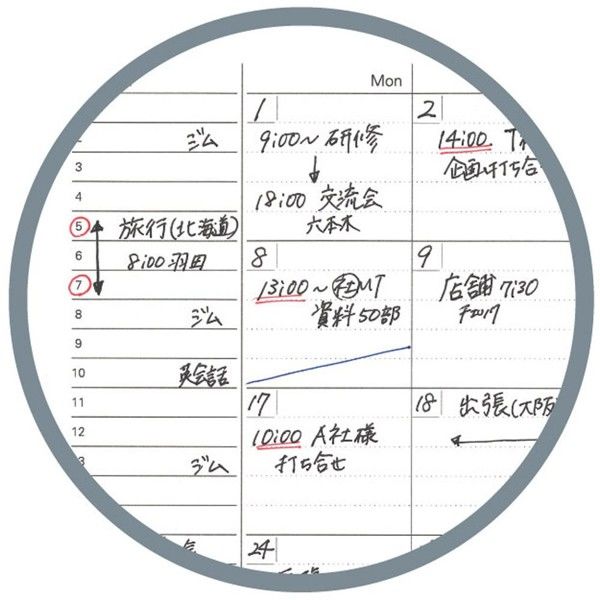 Mon
1
9:00～ 研修
18:00 交流会
六本木
2
14:00
企画打ち合
ジム
3
4
5 旅行(北海道)
6 8:00 羽田
7
8 ジム
9
10 英会話
11
12
ジム
8
13:00～ 社MT
資料50部
9
店舗 7:30
17
10:00 A社様
打ち合せ
18 出張(大阪
24